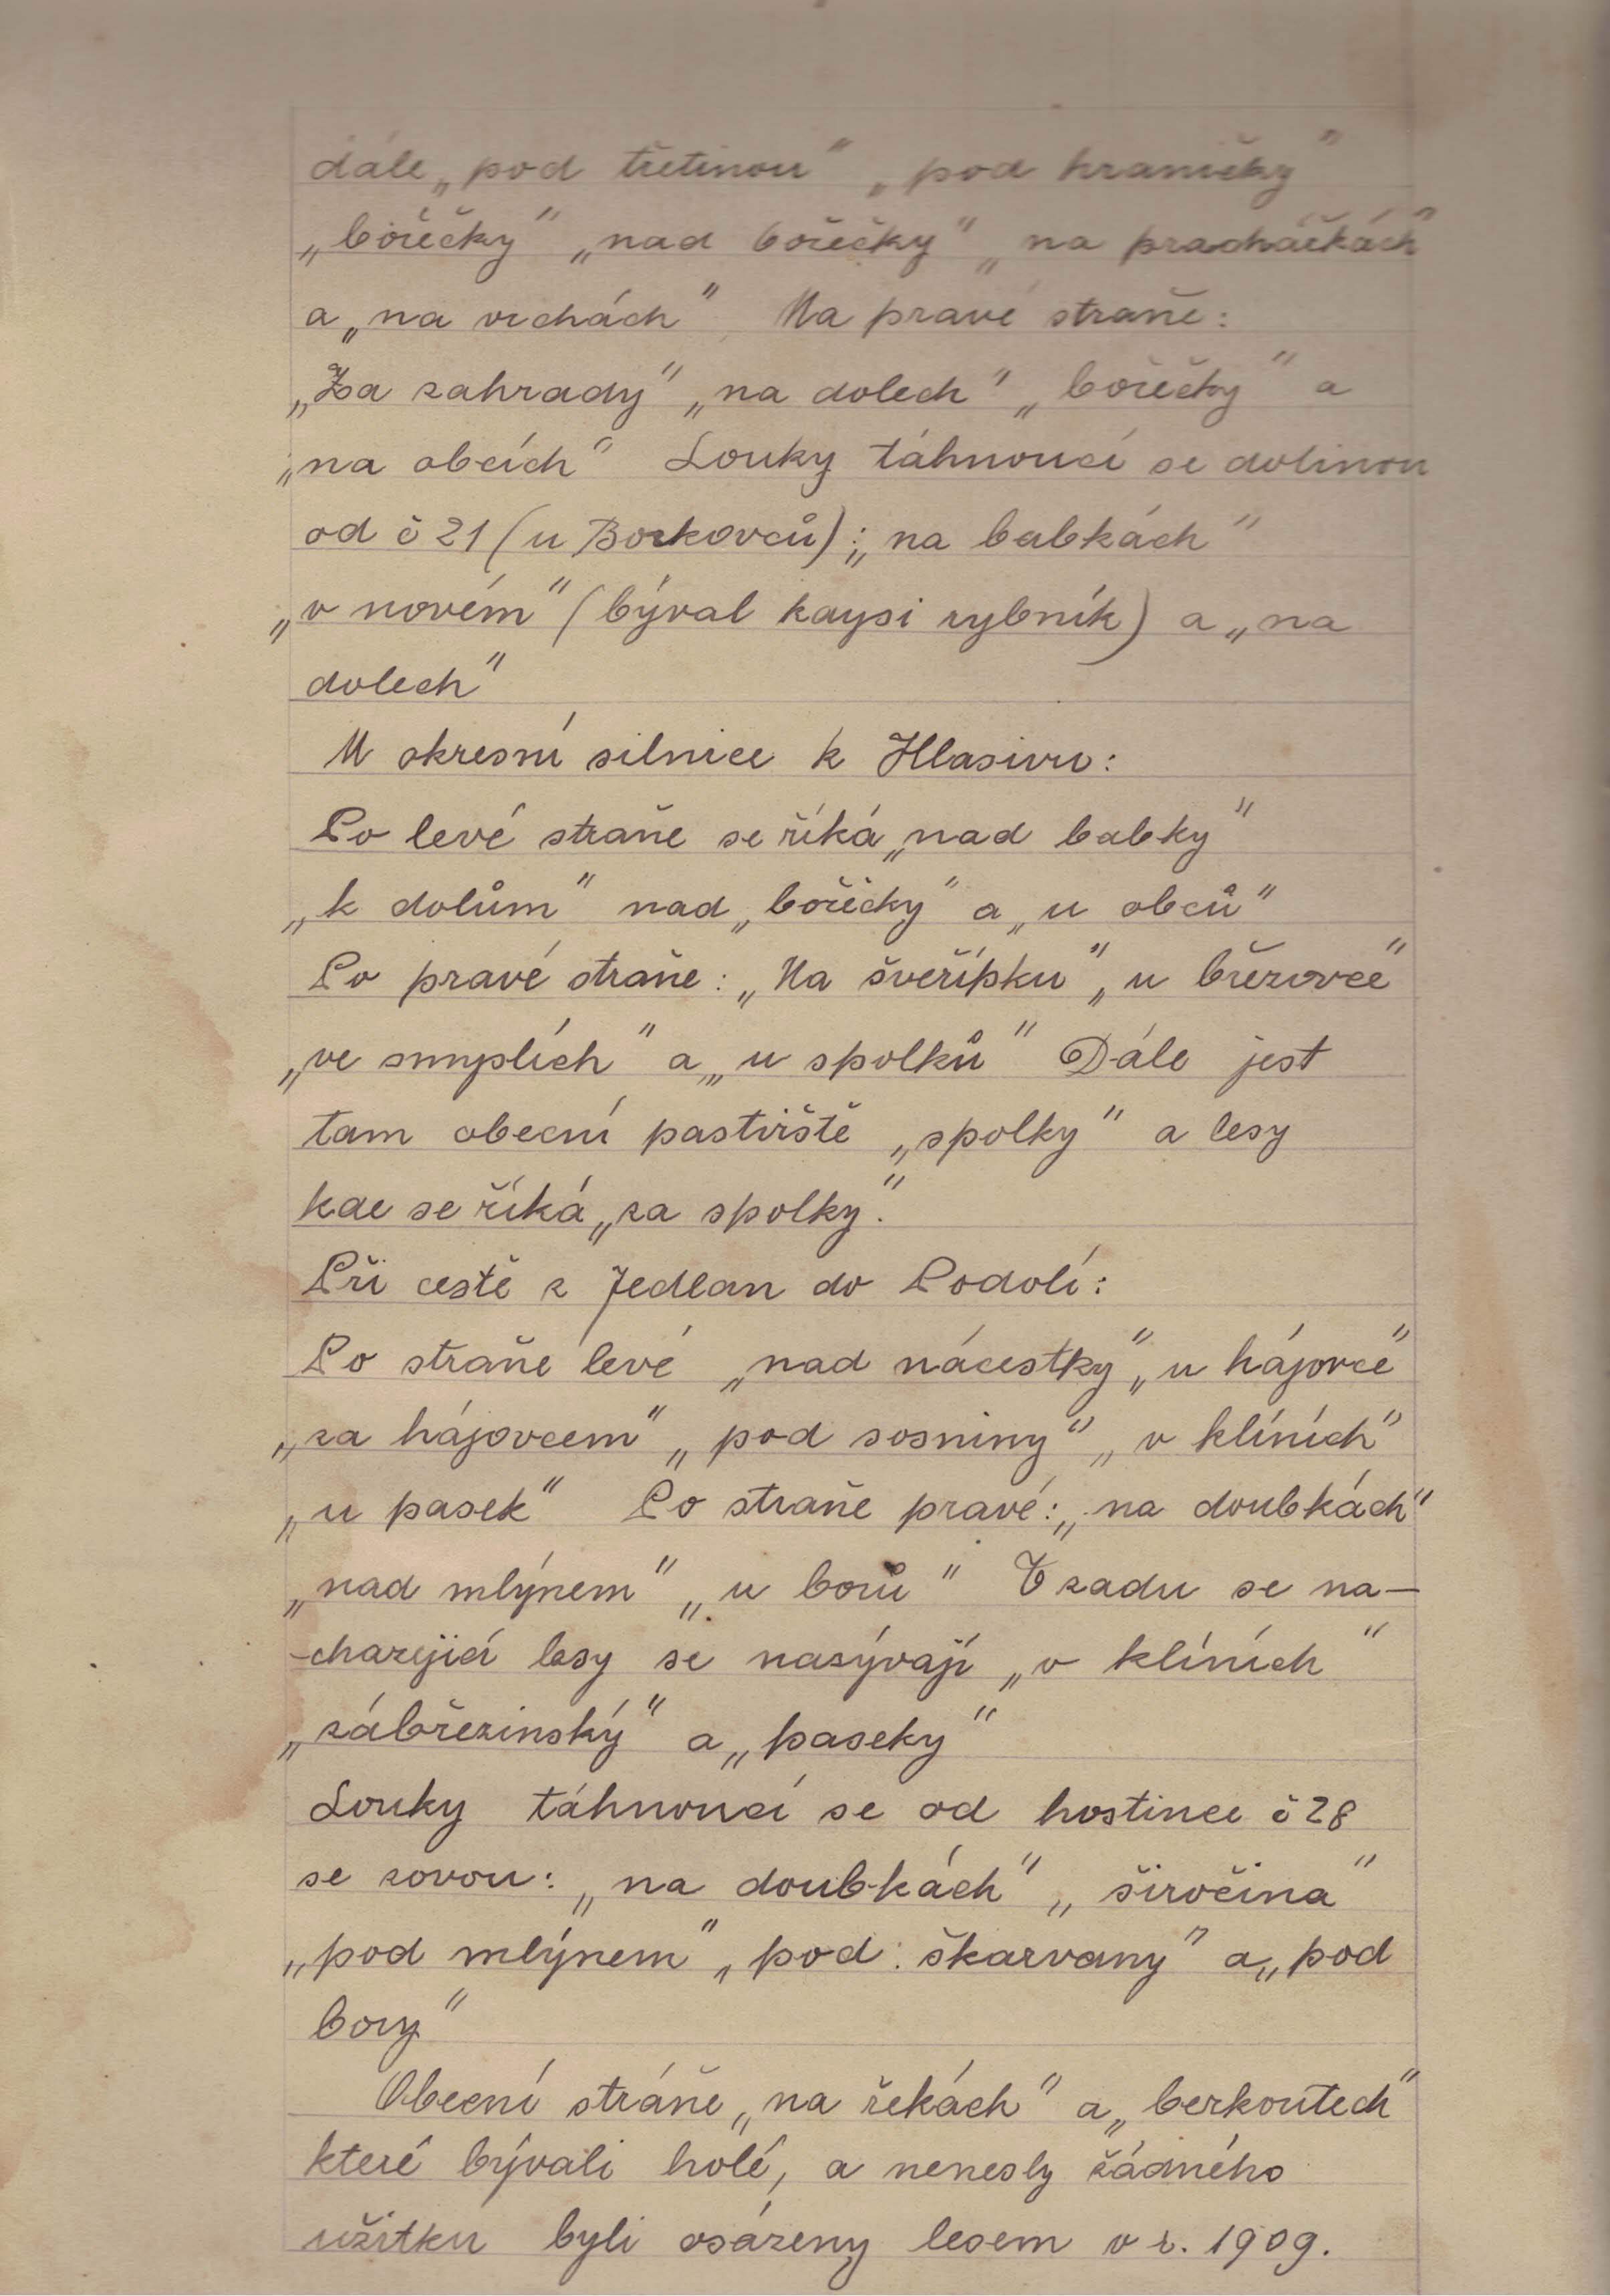 dále „pod třetinou“ „pod hraničky“
„bořečky“ „nad bořečky“ „na pracháčkách“
a „na vrchách“ Na pravé straně:
„Za zahrady“ „na dolech“ „bořečky“ a
„na obcích“ Louky táhnoucí se dolinou
od č 21 (u Borkovců): „na babkách“
„v novém“ (býval kaysi rybník) a „na
dolech“
U okresní silnice k Hlasivu:
Po levé straně se říká „nad babky“
„k dolům“ nad „bořečky“ a „u obců“
Po pravé straně: „Na šveřípku“ „u březovce“
„ve smyslích“ a „u spolků“ Dále jest
tam obecní pastviště „spolky“ a lesy
kde se říká „za spolky“.
Při cestě z Jedlan do Podolí:
Po straně levé „nad nácestky“ „u hájovce“
„za hájovcem“ „pod sosniny“ „v klíních“
„u pasek“ Po straně pravé: „na doubkách“
„nad mlýnem“ „u borů“ Vzadu se na-
-chazející lesy se nazývají „v klíních“
„zábřezinský“ a „paseky“
Louky táhnoucí se od hostince č 28
se zovou: „na doubkách“ „širočina“
„pod mlýnem“ „pod škarvany“ a „pod
bory“
Obecní stráně „na řekách“ a „berkoutech“
které bývali holé, a nenesly žádného
užitku byli osázeny lesem v r. 1909.